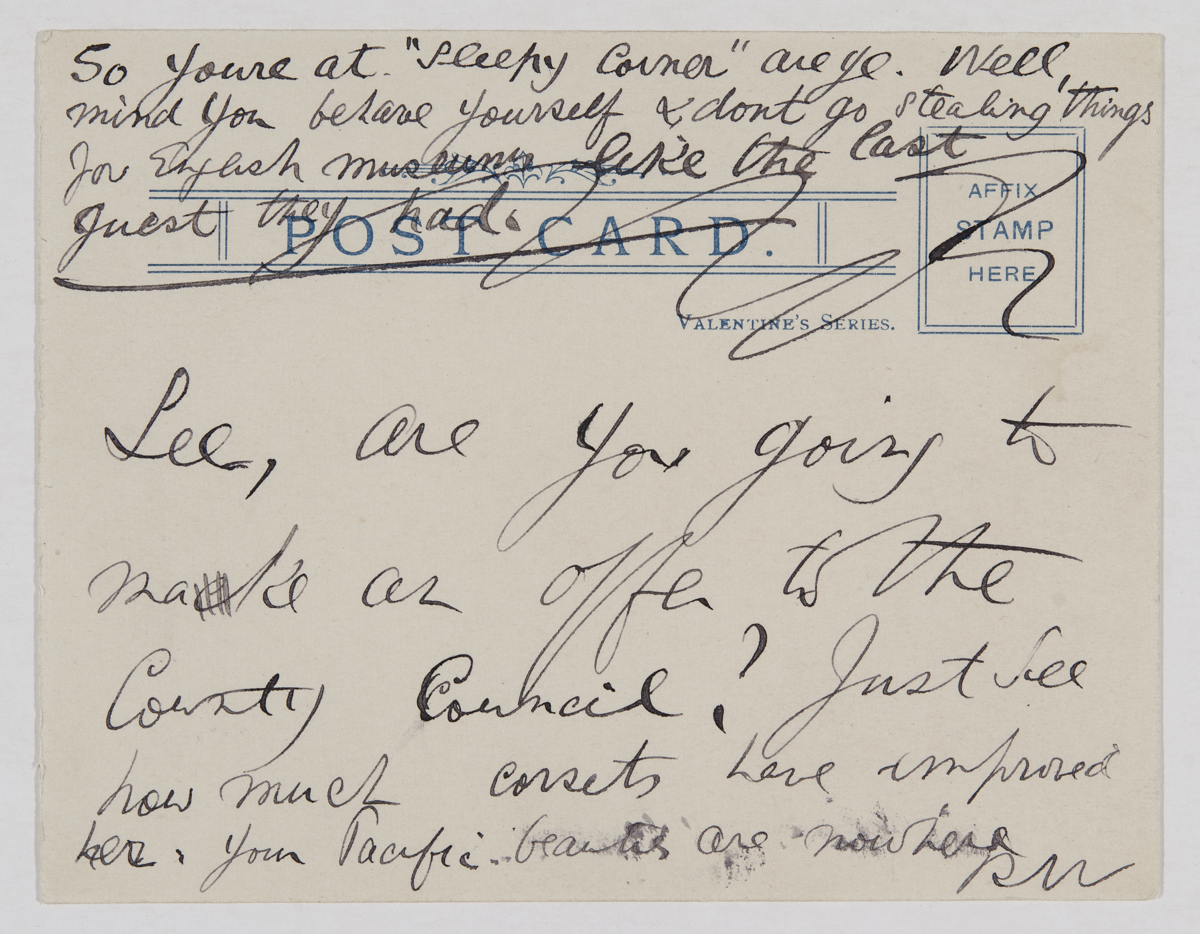 So youre at "Sleepy Corner" are ye. Well,
mind you behave yourself & dont go stealing things
for English museums like the last
guest they had.
POST CARD.
AFFIX
STAMP
HERE
VALENTINE'S SERIES.
See, are you going to
make an offer to the
County Council? Just see
how much corsets have improved
her. Your Pacific beauties are nowhere